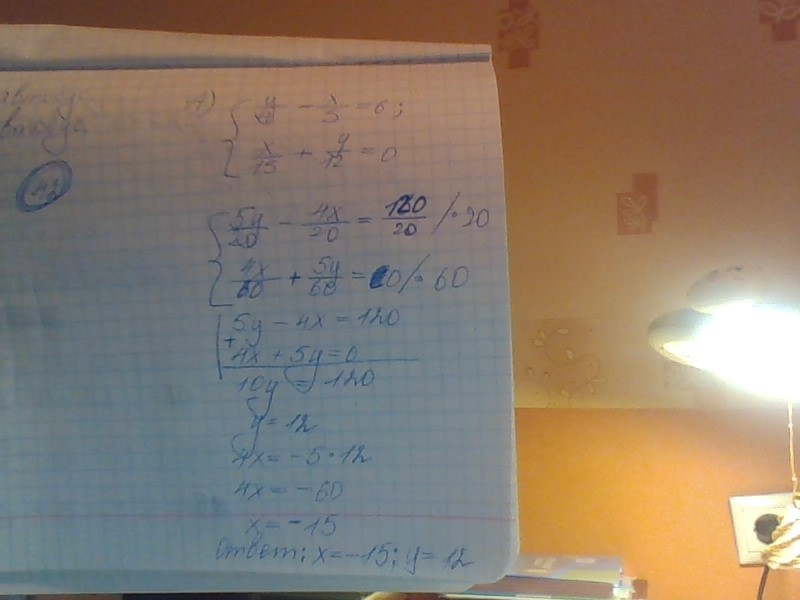 A) { y/4 - x/5 = 6;
{ x/15 + y/12 = 0
{ 5y/20 - 4x/20 = 120/20 /·20
{ 4x/60 + 5y/60 = 0 /·60
5y - 4x = 120
+
4x + 5y = 0
10y = 120
y = 12
4x = -5·12
4x = -60
x = -15
Ответ: x = -15; y = 12